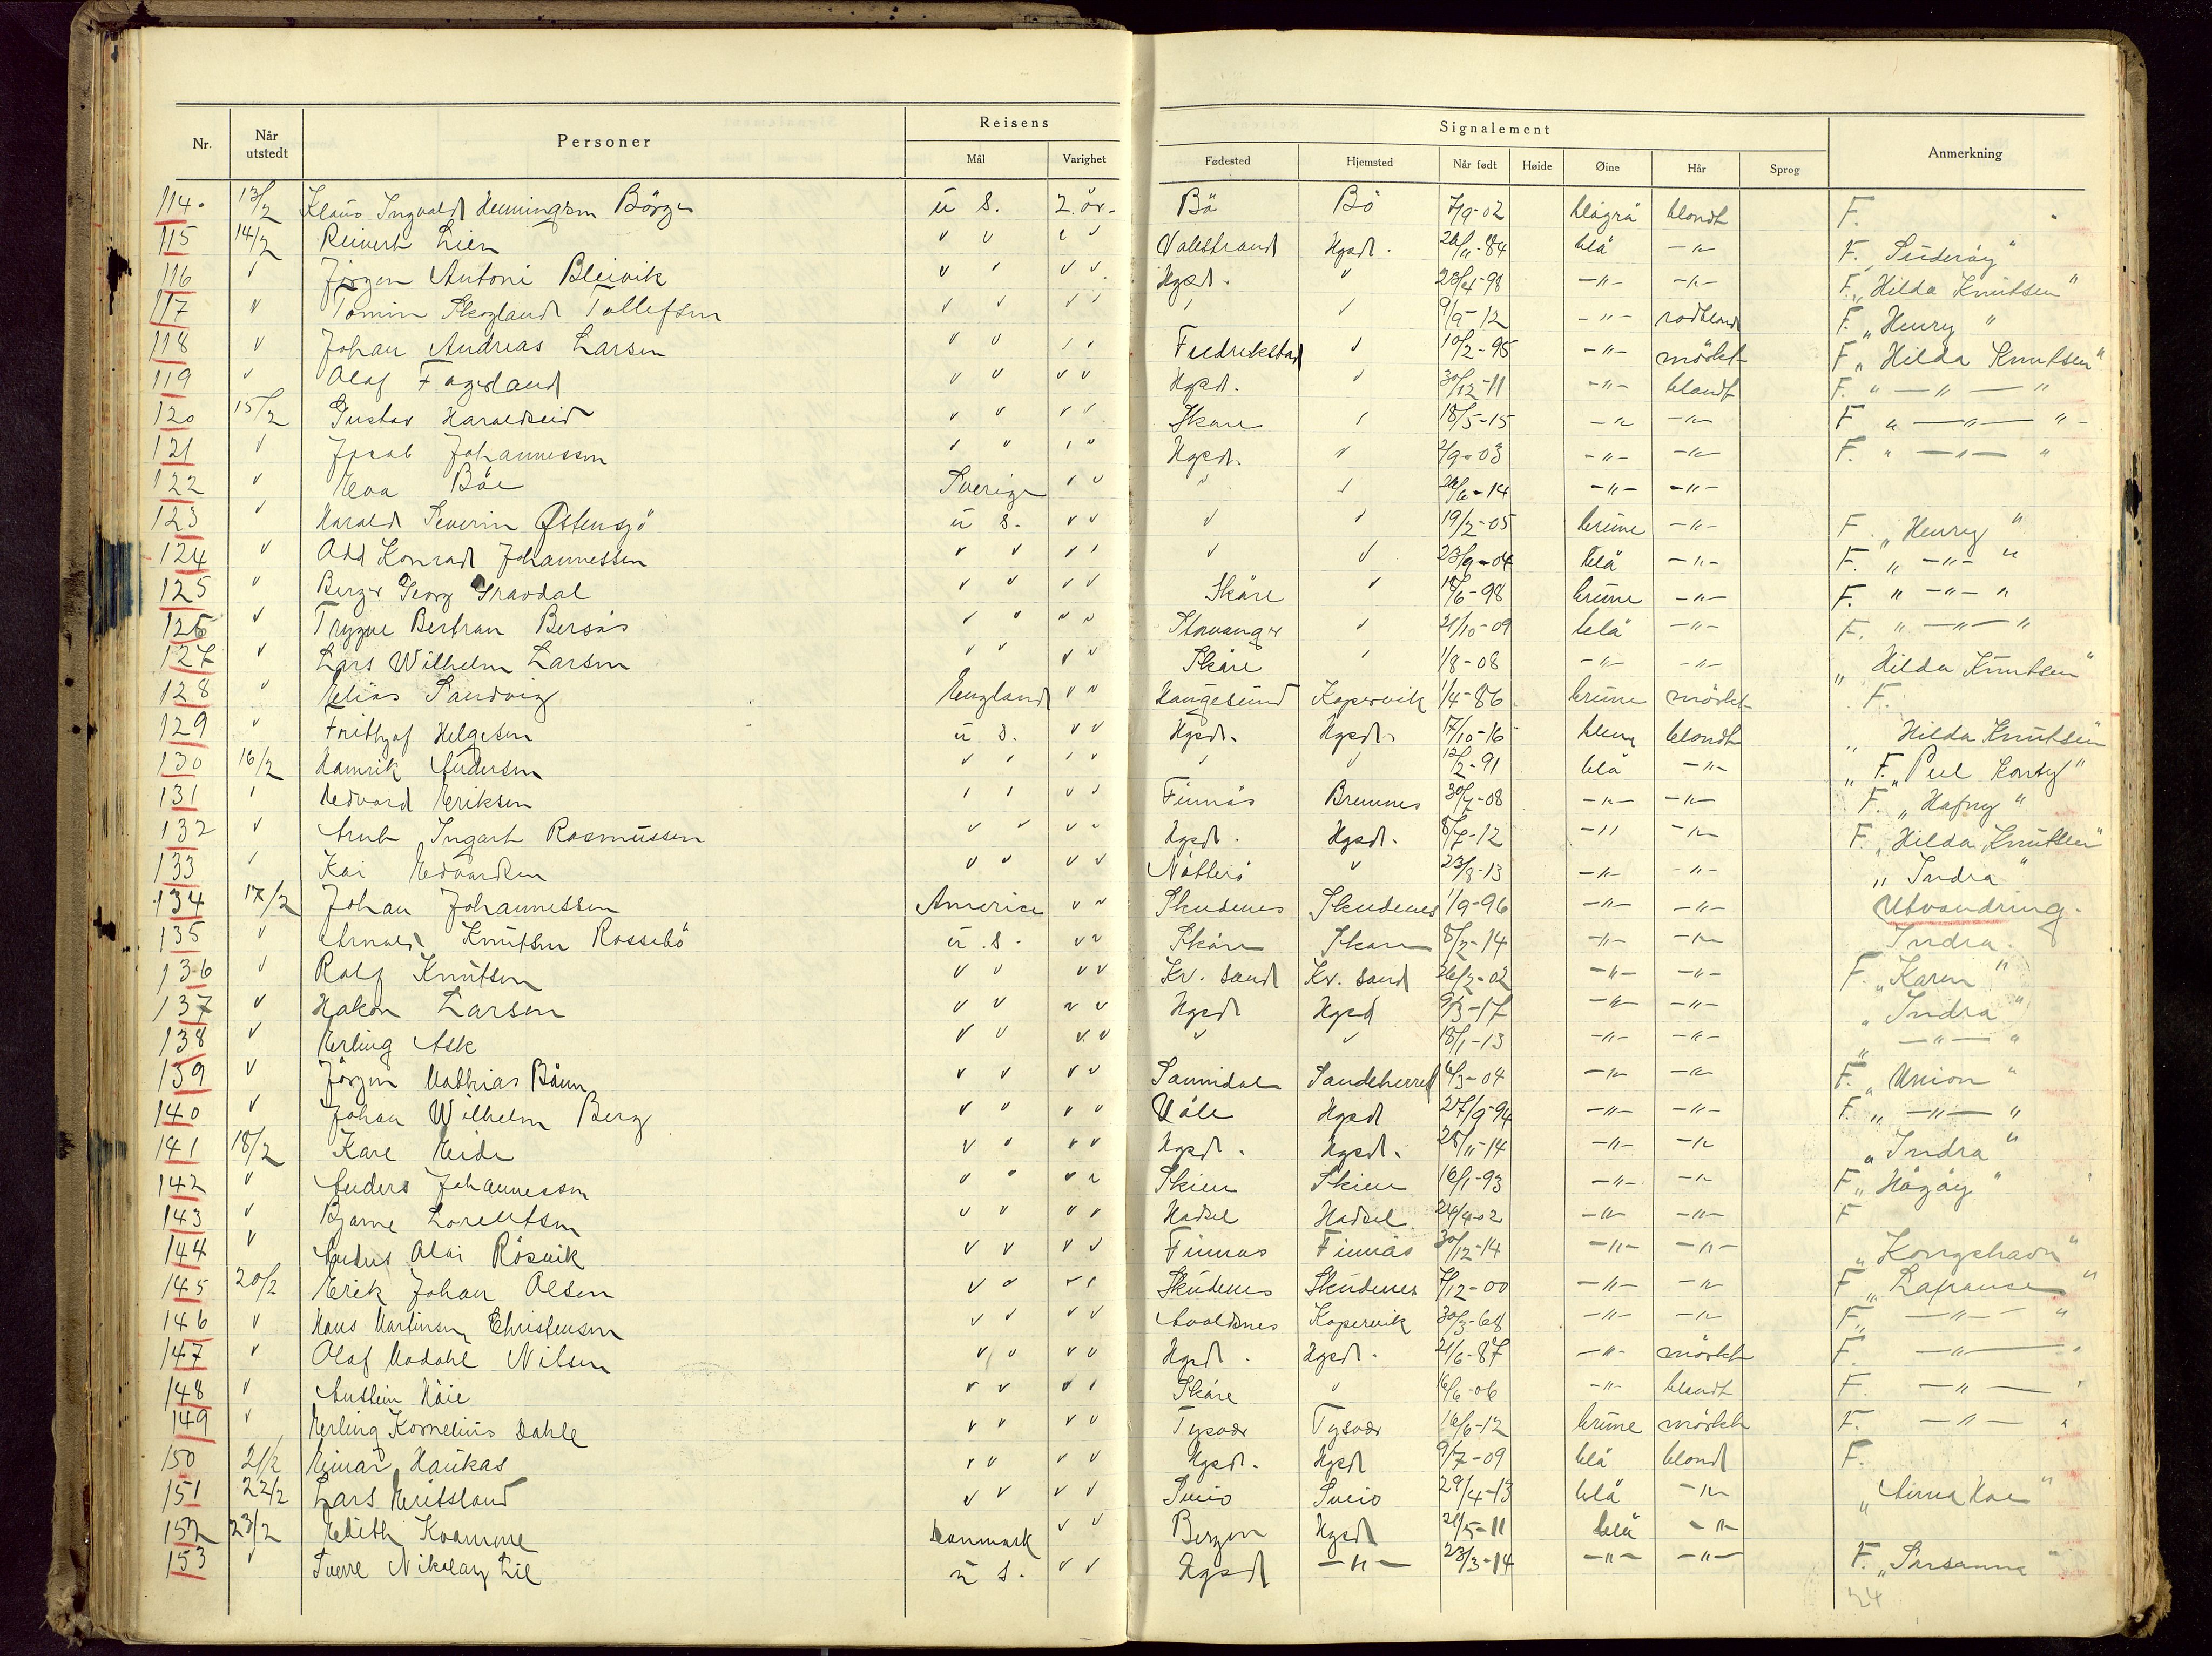 Reisens Signalement
Nr. Når utstedt Personer Mål Varighet Fødested Hjemsted Når født Høide Øine Hår Sprog Anmerkning
114. 13/2 Klaus Ingvald Henningsen Börge ü S. 2. år. Bö Bö 7/9-02 blågrå blondt F.
115 14/2 Reinert Lien v v v v Valestrand Hgsd. 26/11-84 blå -"- F. "Suderöy"
116 v Jörgen Antoni Bleivik v v v v Hgsd. v 28/4-98 -"- -"- F. "Hilda Knutsen"
117 v Tomin Skogland Tollefsen v v v v v v 9/9-12 -"- rødblond F. "Henry"
118 v Johan Andreas Larsen v v v v Fredrikstad v 10/2-95 -"- mörkt F. "Hilda Knutsen"
119 v Olaf Fagerland v v v v Hgsd. v 30/12-11 -"- blondt F. " -"- "
120 15/2 Gustav Haraldseid v v v v Skåre v 18/5-15 -"- -"- F " -"- "
121 v Jakob Johannessen v v v v Hgsd. v 2/9-03 -"- -"- F. " -"- "
122 v Eva Böe Sverige v v v v 26/6-14 -"- -"-
123 v Harald Severin Østensjö ü S. v v v v 19/2-05 brune -"- F. "Henry"
124 v Odd Konrad Johannessen v v v v v v 23/9-04 blå -"- F. " -"- "
125 v Berger Georg Gravdal v v v v Skåre v 18/6-98 brune -"- F. " -"- "
126 v Trygve Bertran Bersås v v v v Stavanger v 21/10-09 blå -"- F. " -"- "
127 v Lars Wilhelm Larsen v v v v Skåre v 1/8-08 -"- -"- "Hilda Knutsen"
128 v Elias Sandvig England v v Haugesund Kopervik 1/4-86 brune mörkt F.
129 v Frithjof Helgesen ü S. v v Hgsd. Hgsd. 17/10-16 blondt "Hilda Knutsen"
130 16/2 Henrik Andersen v v v v v v 12/2-91 blå -"- " F.
131 v Edvard Eriksen v v v v Finnås Bremnes 30/7-08 -"- -"- F. "Hafny"
132 v Arnt Ingart Rasmussen v v v v Hgsd. Hgsd. 8/7-12 -"- -"- F. "Hilda Knutsen"
133 v Kai Edvardsen v v v v Nötterö v 23/8-13 -"- -"- "Indra"
134 17/2 Johan Johannessen America v v Skudenes Skudenes 1/9-96 -"- -"- Utvandring.
135 v Arnold Knutsen Rossebö ü S. v v Skåre Skåre 8/2-14 -"- -"- Indra.
136 v Rolf Knutsen v v v v Kr. sand Kr. sand 26/2-02 -"- -"- F. "Karen"
137 v Hakon Larsen v v v v Hgsd Hgsd 9/3-17 -"- -"- "Indra"
138 v Erling Ask v v v v v v 18/1-13 -"- -"- " -"- "
139 v Jörgen Mathias Båum v v v v Sannidal Sandeherred 6/3-04 -"- -"- F. "Union"
140 v Johan Wilhelm Berg v v v v Våle Hgsd 27/9-94 -"- -"- F. " -"- "
141 18/2 Kare Eide v v v v Hgsd. Hgsd. 28/11-14 -"- -"- "Indra"
142 v Anders Johannessen v v v v Skien Skien 16/1-93 -"- -"- F "Hågöy"
143 v Bjarne Lorentsen v v v v Hadsel Hadsel 24/4-02 -"- -"- F
144 v Anders Olai Rösvik v v v v Finnås Finnås 30/12-14 -"- -"- "Kongshavn"
145 20/2 Erik Johan Olsen v v v v Skudenes Skudenes 7/12-00 -"- -"- F "Lafrance"
146 v Hans Martinsen Christensen v v v v Avaldsnes Kopervik 30/3-68 -"- -"- F " -"- "
147 v Olaf Madahl Nilsen v v v v Hgsd. Hgsd. 21/6-87 -"- mörkt F. -"- "
148 v Austein Höie v v v v Skåre v 16/6-06 -"- blondt F. -"- "
149 v Erling Kornelius Dahle v v v v Tysvær Tysvær 16/6-12 brune mörkt F. -"- "
150 21/2 Einar Haukås v v v v Hgsd. Hgsd 9/7-09 blå blond F.
151 22/2 Lars Eritsland v v v v Sveio Sveio 29/4-13 blå -"-
152 23/2 Edith Kvamme Danmark v v Bergen Hgsd 21/5-11 blå -"-
153 v Sverre Nikolay Lie ü S. v v Hgsd -"- 23/3-14 -"- -"- F. "Sursanna"
24